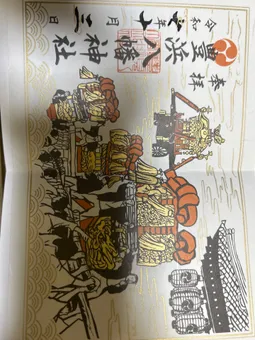 奉拝
豊浜八幡神社
令和七年十月二日